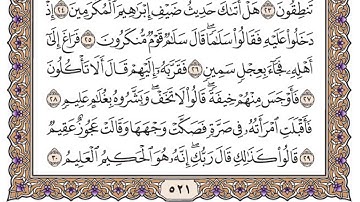 تَنطِقُونَ ٢٣ هَلْ أَتَىٰكَ حَدِيثُ ضَيْفِ إِبْرَٰهِيمَ ٱلْمُكْرَمِينَ ٢٤ إِذْ
دَخَلُوا۟ عَلَيْهِ فَقَالُوا۟ سَلَٰمًا ۖ قَالَ سَلَٰمٌ قَوْمٌ مُّنكَرُونَ ٢٥ فَرَاغَ إِلَىٰٓ
أَهْلِهِۦ فَجَآءَ بِعِجْلٍ سَمِينٍ ٢٦ فَقَرَّبَهُۥٓ إِلَيْهِمْ قَالَ أَلَا تَأْكُلُونَ
٢٧ فَأَوْجَسَ مِنْهُمْ خِيفَةً ۖ قَالُوا۟ لَا تَخَفْ ۖ وَبَشَّرُوهُ بِغُلَٰمٍ عَلِيمٍ ٢٨
فَأَقْبَلَتِ ٱمْرَأَتُهُۥ فِى صَرَّةٍ فَصَكَّتْ وَجْهَهَا وَقَالَتْ عَجُوزٌ عَقِيمٌ
٢٩ قَالُوا۟ كَذَٰلِكِ قَالَ رَبُّكِ ۖ إِنَّهُۥ هُوَ ٱلْحَكِيمُ ٱلْعَلِيمُ ٣٠
٥٢١